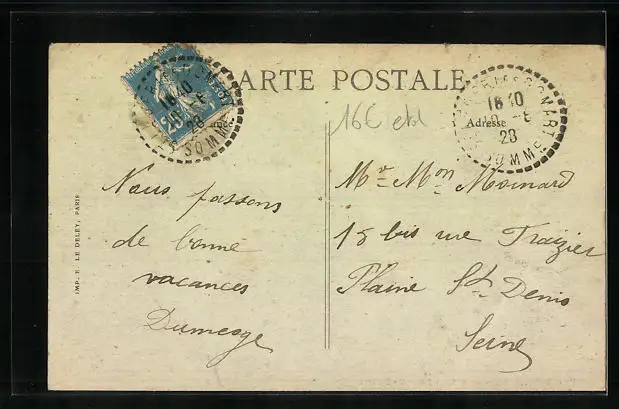 CARTE POSTALE
Adresse
16€ etd
18 40
28
SOMME
18 40
28
SOMME
Nous passons
de bonne
vacances
Dumesge
Mr Mme Moinard
15 bis rue Fraizier
Plaine St Denis
Seine
IMP. E. LE DELEY, PARIS